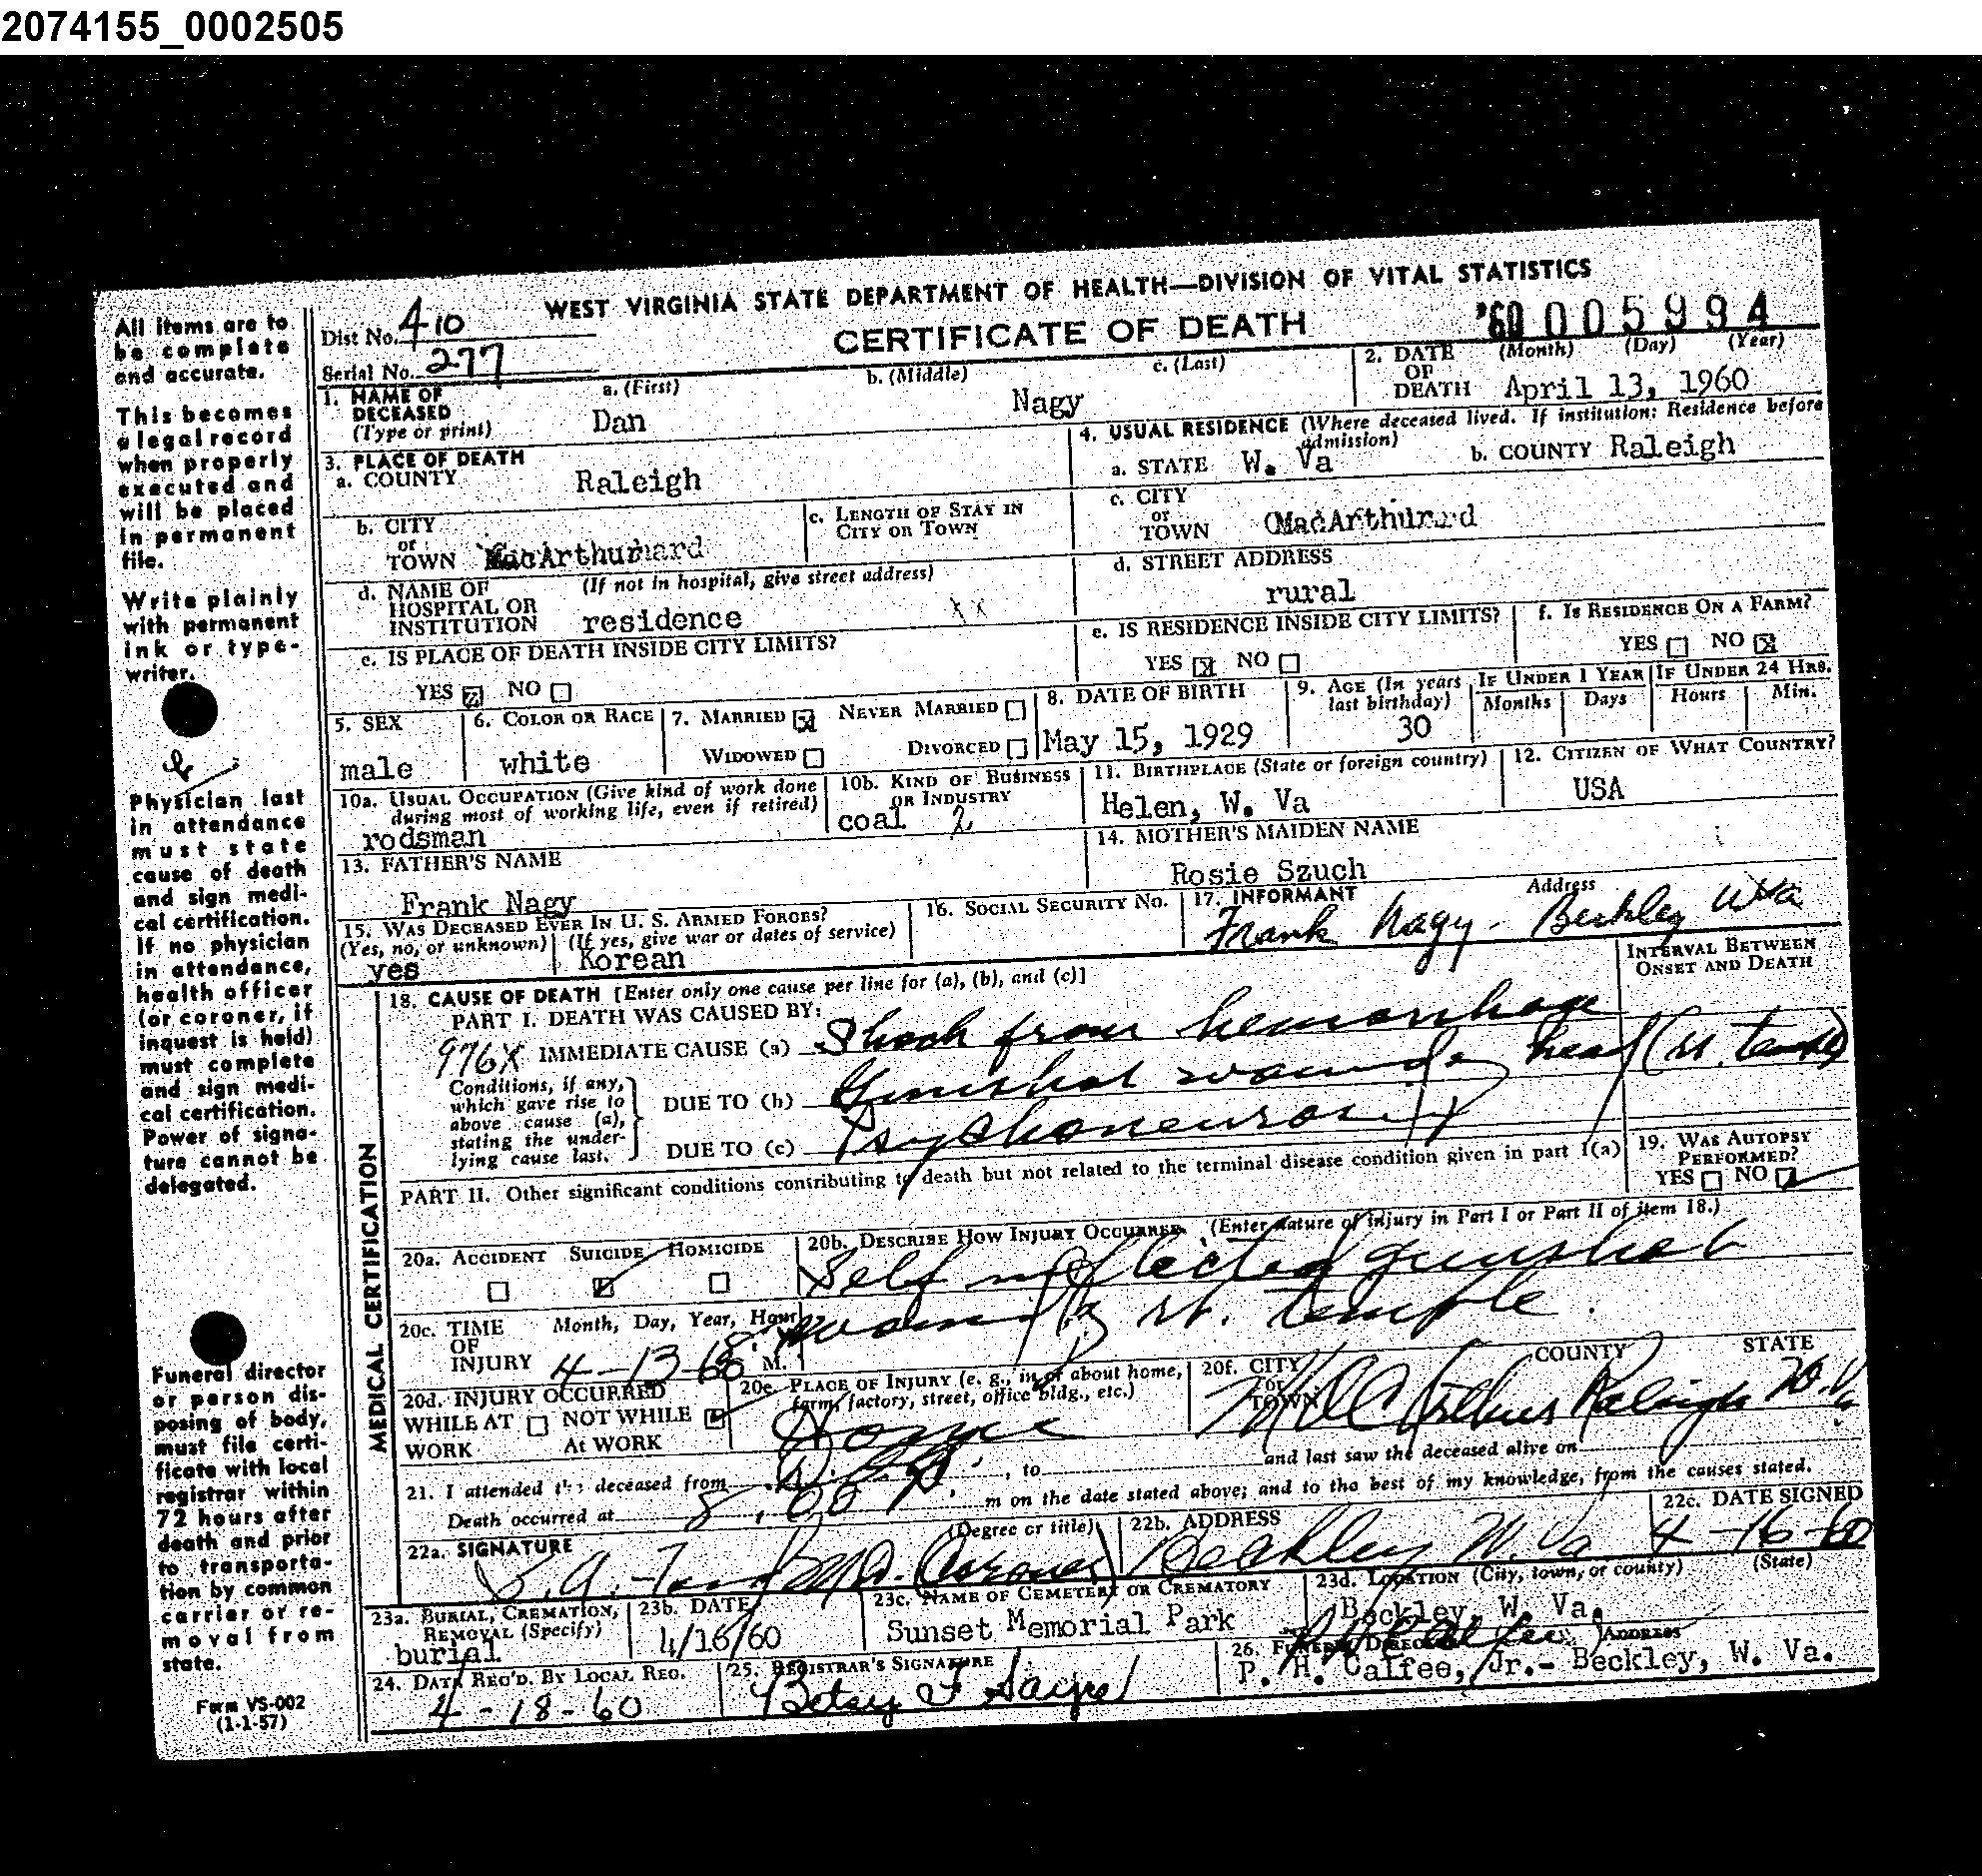 2074155_0002505
WEST VIRGINIA STATE DEPARTMENT OF HEALTH—DIVISION OF VITAL STATISTICS
CERTIFICATE OF DEATH
'60 005994
Dist No. 410
Serial No. 277
All items are to
be complete
and accurate.
This becomes
a legal record
when properly
executed and
will be placed
in permanent
file.
Write plainly
with permanent
ink or type-
writer.
Physician last
in attendance
must state
cause of death
and sign medi-
cal certification.
If no physician
in attendance,
health officer
(or coroner, if
inquest is held)
must complete
and sign medi-
cal certification.
Power of signa-
ture cannot be
delegated.
Funeral director
or person dis-
posing of body,
must file certi-
ficate with local
registrar within
72 hours after
death and prior
to transporta-
tion by common
carrier or re-
moval from
state.
Form VS-002
(1-1-57)
1. NAME OF DECEASED (Type or print)
a. (First) b. (Middle) c. (Last)
Dan Nagy
2. DATE OF DEATH (Month) (Day) (Year)
April 13, 1960
3. PLACE OF DEATH
a. COUNTY Raleigh
4. USUAL RESIDENCE (Where deceased lived. If institution: Residence before admission)
a. STATE W. Va b. COUNTY Raleigh
b. CITY or TOWN MacArthur
c. LENGTH OF STAY IN CITY OR TOWN
c. CITY or TOWN MacArthur
d. NAME OF HOSPITAL OR INSTITUTION (If not in hospital, give street address)
residence xx
d. STREET ADDRESS
rural
e. IS PLACE OF DEATH INSIDE CITY LIMITS?
YES NO
e. IS RESIDENCE INSIDE CITY LIMITS?
YES X NO
f. IS RESIDENCE ON A FARM?
YES NO X
5. SEX
male
6. COLOR OR RACE
white
7. MARRIED X NEVER MARRIED
WIDOWED DIVORCED
8. DATE OF BIRTH
May 15, 1929
9. AGE (In years last birthday)
30
IF UNDER 1 YEAR
Months Days
IF UNDER 24 HRS.
Hours Min.
10a. USUAL OCCUPATION (Give kind of work done during most of working life, even if retired)
rodsman
10b. KIND OF BUSINESS OR INDUSTRY
coal 2
11. BIRTHPLACE (State or foreign country)
Helen, W. Va
12. CITIZEN OF WHAT COUNTRY?
USA
13. FATHER'S NAME
Frank Nagy
14. MOTHER'S MAIDEN NAME
Rosie Szuch
15. WAS DECEASED EVER IN U. S. ARMED FORCES?
(Yes, no, or unknown) (If yes, give war or dates of service)
yes Korean
16. SOCIAL SECURITY No.
17. INFORMANT Address
Frank Nagy - Beckley W Va
MEDICAL CERTIFICATION
18. CAUSE OF DEATH [Enter only one cause per line for (a), (b), and (c)]
INTERVAL BETWEEN ONSET AND DEATH
PART I. DEATH WAS CAUSED BY:
976X IMMEDIATE CAUSE (a) Shock from hemorrhage
Conditions, if any, which gave rise to above cause (a), stating the underlying cause last.
DUE TO (b) Gunshot wound of head (rt. temple)
DUE TO (c) Psychoneurosis
PART II. Other significant conditions contributing to death but not related to the terminal disease condition given in part I(a)
19. WAS AUTOPSY PERFORMED?
YES NO
20a. ACCIDENT SUICIDE HOMICIDE
20b. DESCRIBE HOW INJURY OCCURRED. (Enter nature of injury in Part I or Part II of item 18.)
Self inflicted gunshot
wound of rt. temple.
20c. TIME OF INJURY Month, Day, Year, Hour
4-13-60 M.
20d. INJURY OCCURRED
WHILE AT WORK NOT WHILE AT WORK
20e. PLACE OF INJURY (e. g., in or about home, farm, factory, street, office bldg., etc.)
Home
20f. CITY or TOWN COUNTY STATE
McArthur Raleigh W. Va
21. I attended the deceased from , to and last saw the deceased alive on
Death occurred at 8:00 P. m on the date stated above; and to the best of my knowledge, from the causes stated.
22a. SIGNATURE (Degree or title)
M.D. (Coroner)
22b. ADDRESS
Beckley W. Va
22c. DATE SIGNED
4-16-60
23a. BURIAL, CREMATION, REMOVAL (Specify)
burial
23b. DATE
4/16/60
23c. NAME OF CEMETERY OR CREMATORY
Sunset Memorial Park
23d. LOCATION (City, town, or county) (State)
Beckley, W. Va.
24. DATE REC'D. BY LOCAL REG.
4-18-60
25. REGISTRAR'S SIGNATURE
Betsy F Sayre
26. FUNERAL DIRECTOR ADDRESS
P. H. Calfee, Jr.- Beckley, W. Va.